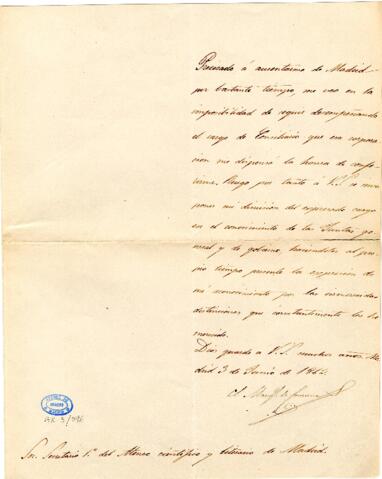 Precisado á ausentarme de Madrid
por bastante tiempo, me veo en la
imposibilidad de seguir desempeñando
el cargo de Consiliario que esa corpora-
cion me dispensó la honra de confe-
rirme. Ruego por tanto á V.S. se sirva
poner mi dimision del espresado cargo
en el conocimiento de las Juntas ge-
neral y de gobierno, haciendoles al pro-
pio tiempo presente la espresion de
mi reconocimiento por las inmerecidas
distinciones que constantemente les he
merecido.
Dios guarde á V.S. muchos años. Ma-
drid 3 de Junio de 186
El Marqs. de
AR. 3/
Sr. Secretario 1º del Ateneo cientifico y literario de Madrid.